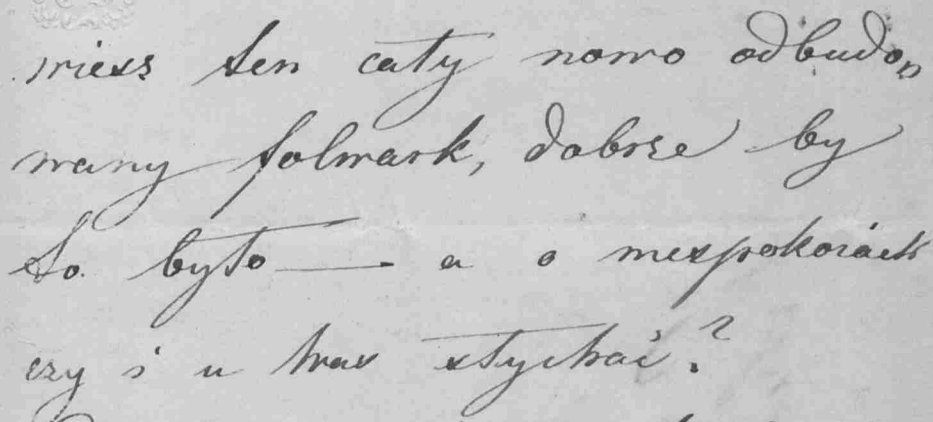 wiesz ten cały nowo odbudo„
wany folwark, dobrze by
to było — a o niespokoiach
czy i u Was słychać?